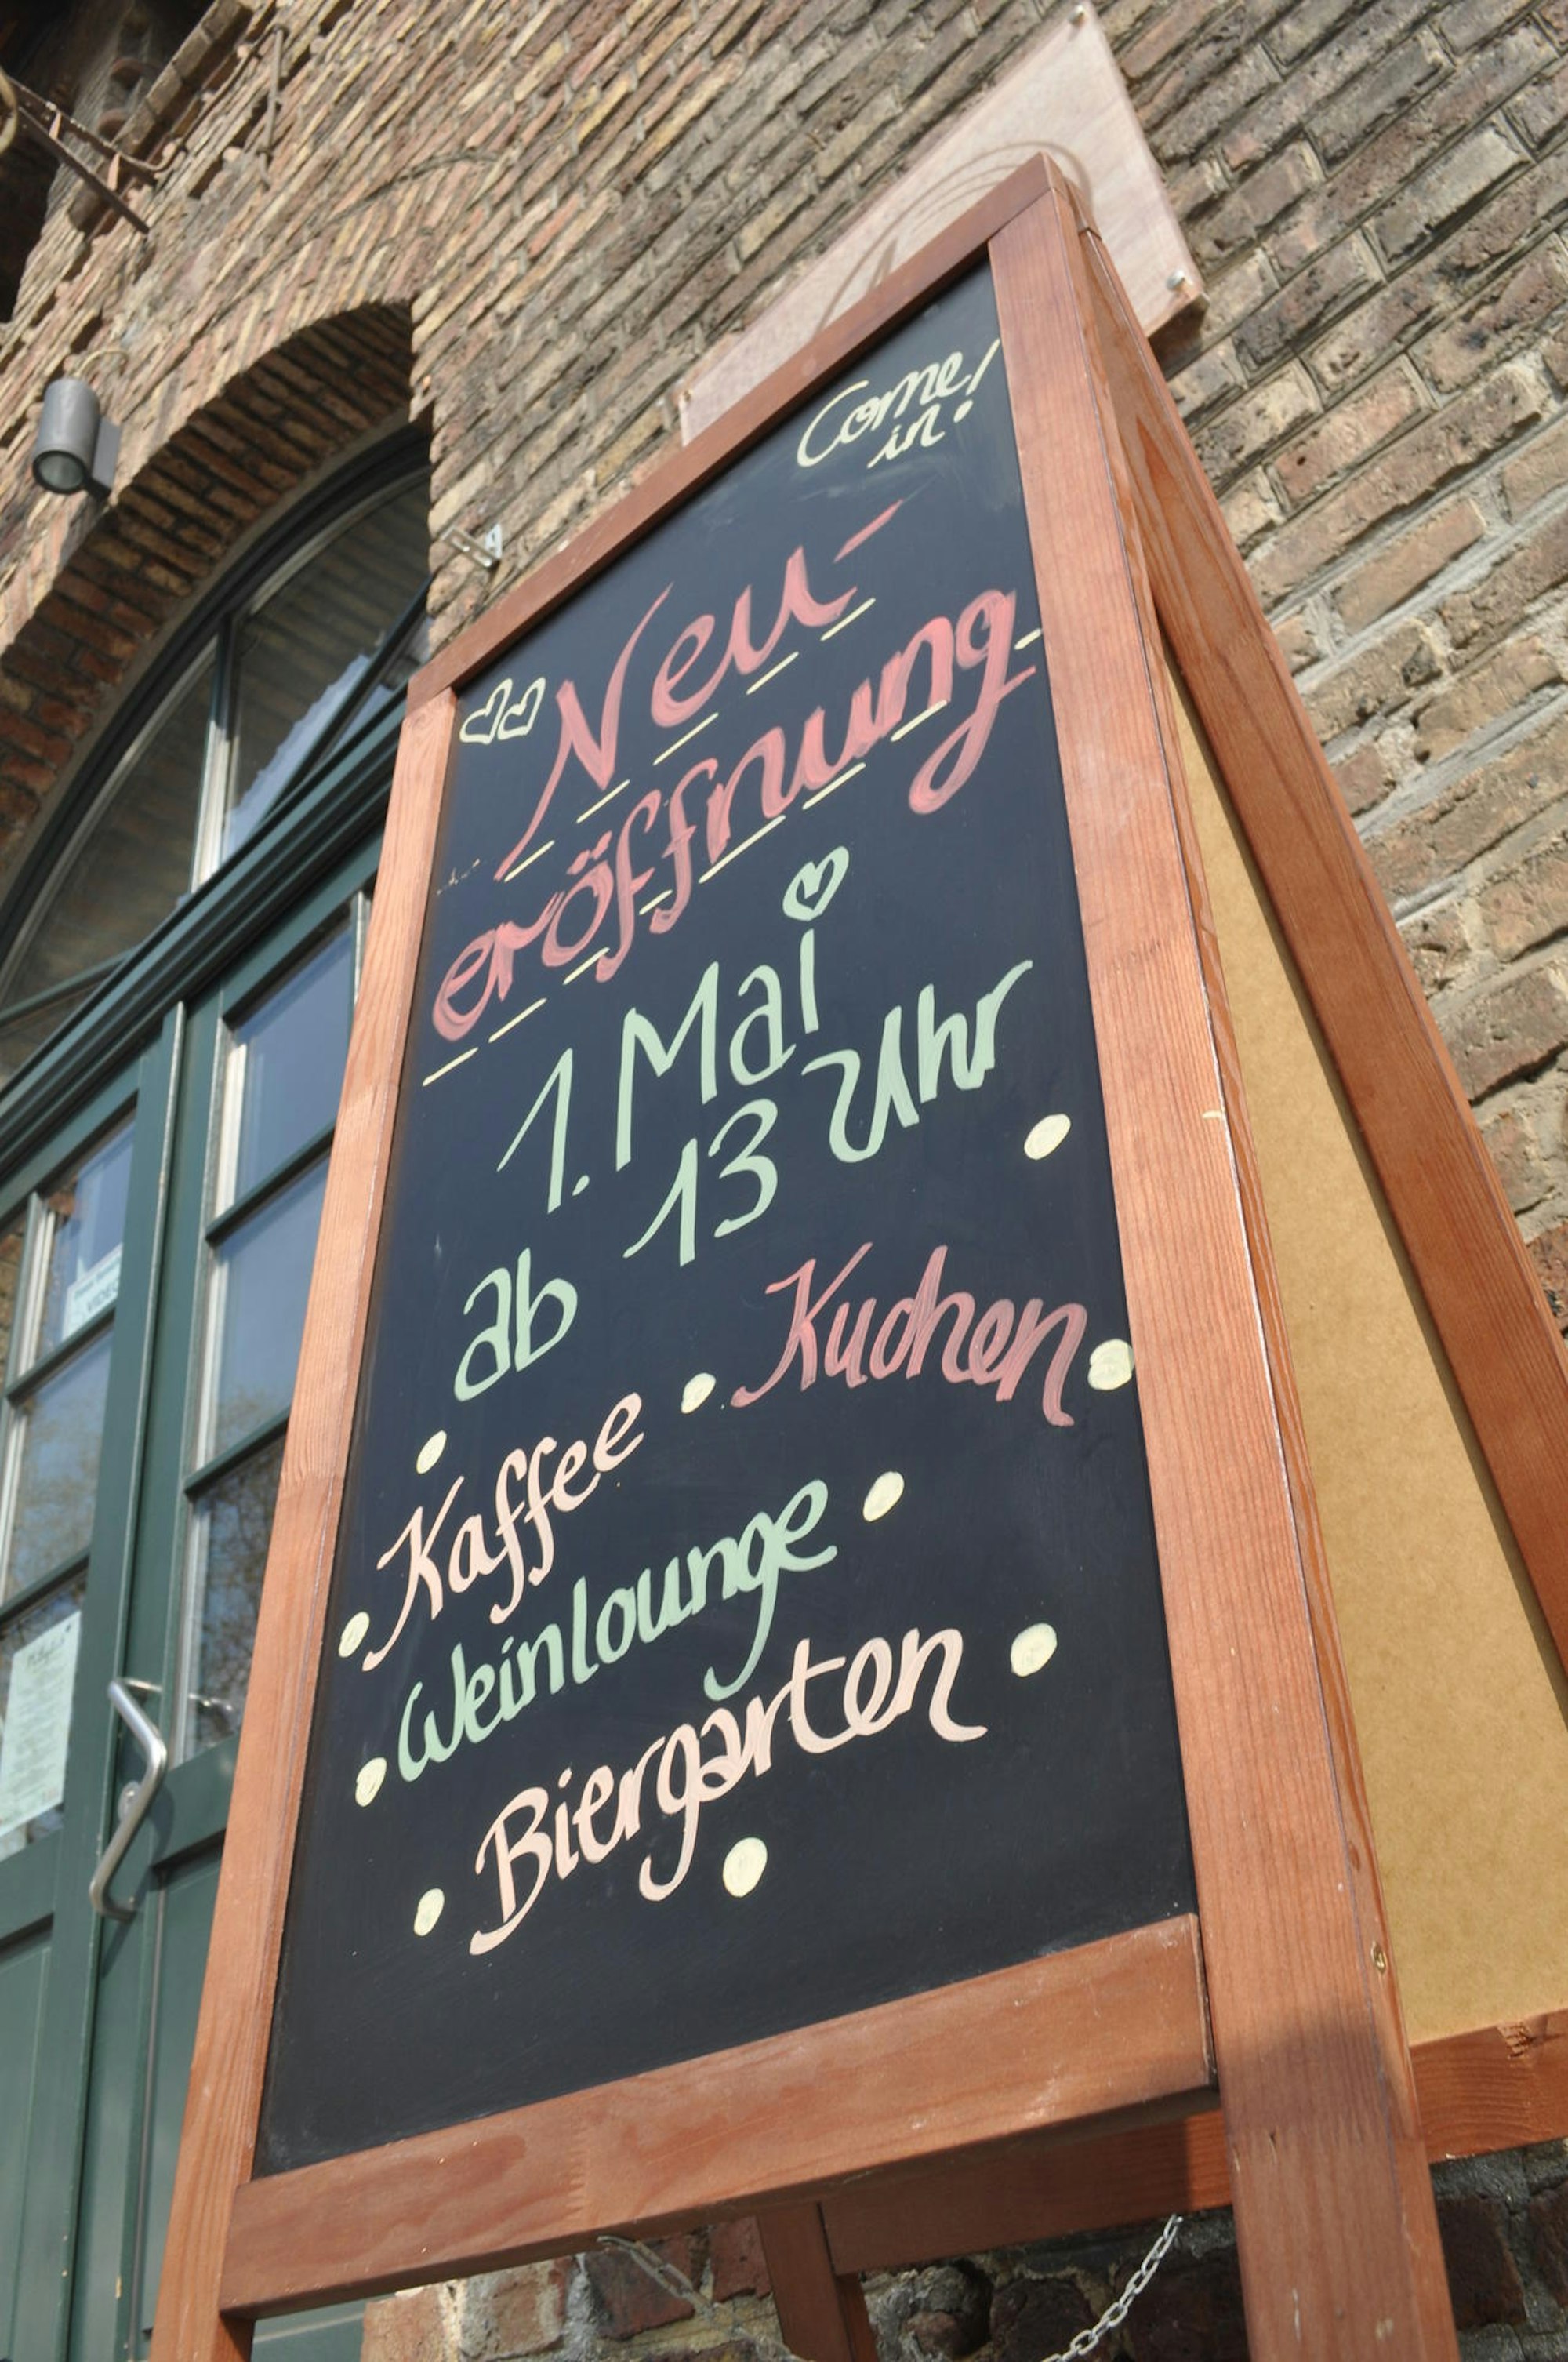 Come
in!
Neu-
eröffnung
1. Mai
ab 13 Uhr
Kaffee • Kuchen
Weinlounge
Biergarten
VIDEO